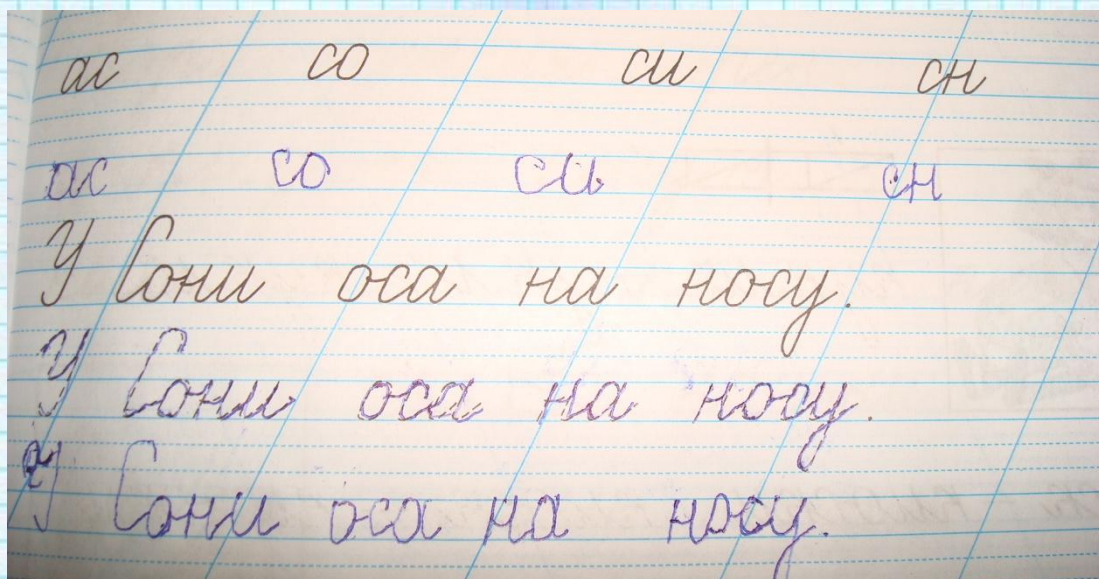 ас со си сн
ас со си сн
У Сони оса на носу.
У Сони оса на носу.
У Сони оса на носу.